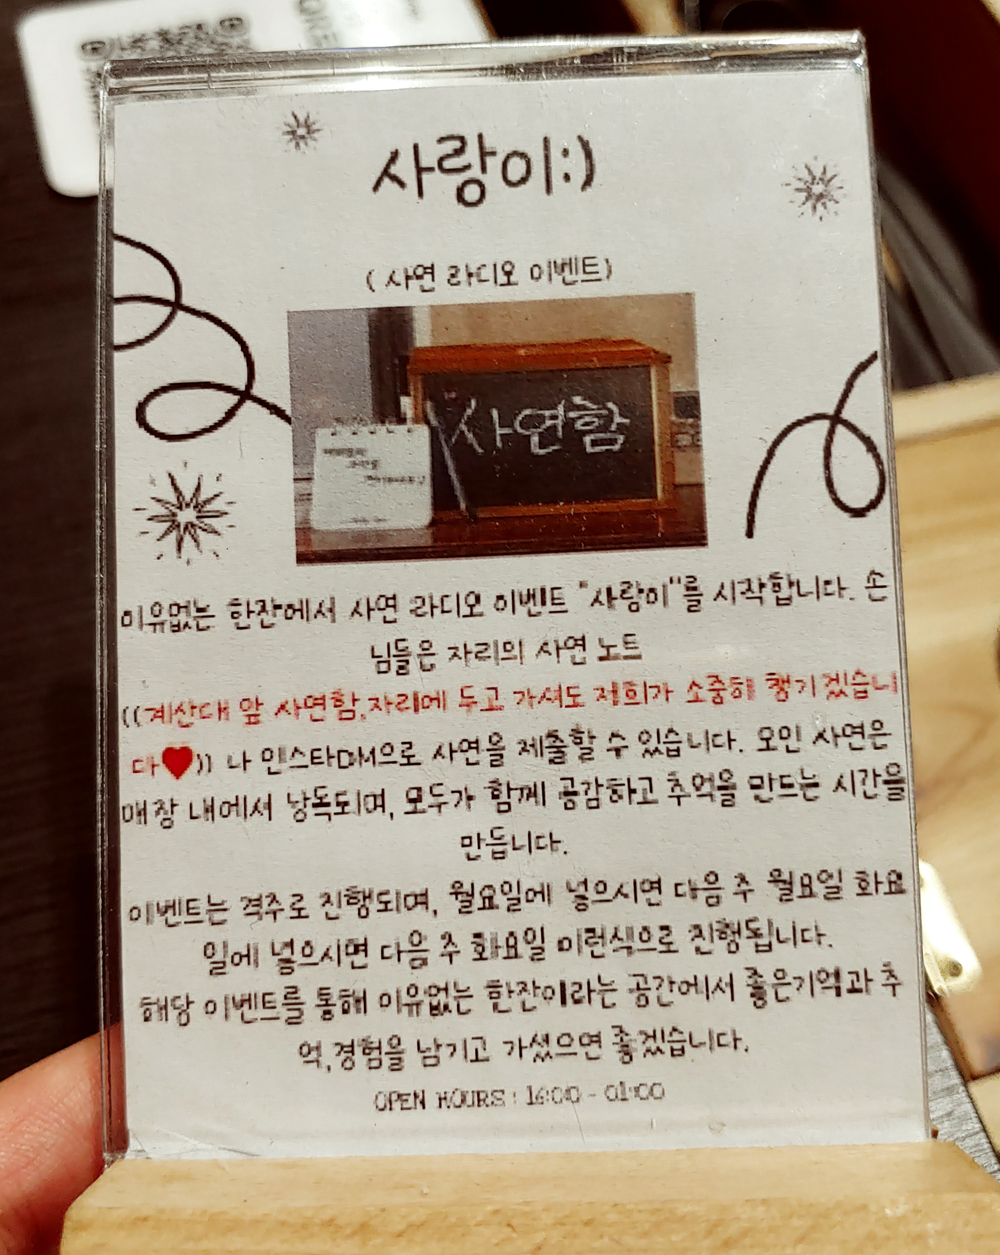 사랑이:)
( 사연 라디오 이벤트)
사연함
이유없는 한잔에서 사연 라디오 이벤트 "사랑이"를 시작합니다. 손
님들은 자리의 사연 노트
((계산대 앞 사연함,자리에 두고 가셔도 저희가 소중히 챙기겠습니
다♥)) 나 인스타DM으로 사연을 제출할 수 있습니다. 모인 사연은
매장 내에서 낭독되며, 모두가 함께 공감하고 추억을 만드는 시간을
만듭니다.
이벤트는 격주로 진행되며, 월요일에 넣으시면 다음 주 월요일 화요
일에 넣으시면 다음 주 화요일 이런식으로 진행됩니다.
해당 이벤트를 통해 이유없는 한잔이라는 공간에서 좋은기억과 추
억,경험을 남기고 가셨으면 좋겠습니다.
OPEN HOURS : 16:00 - 01:00